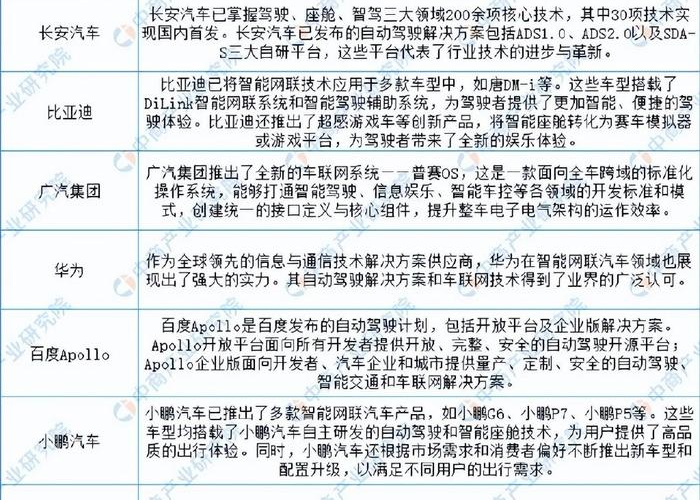 长安汽车
长安汽车已掌握驾驶、座舱、智驾三大领域200余项核心技术，其中30项技术实
现国内首发。长安汽车已发布的自动驾驶解决方案包括ADS1.0、ADS2.0以及SDA-
S三大自研平台，这些平台代表了行业技术的进步与革新。
比亚迪
比亚迪已将智能网联技术应用于多款车型中，如唐DM-i等。这些车型搭载了
DiLink智能网联系统和智能驾驶辅助系统，为驾驶者提供了更加智能、便捷的驾
驶体验。比亚迪还推出了超感游戏车等创新产品，将智能座舱转化为赛车模拟器
或游戏平台，为驾驶者带来了全新的娱乐体验。
广汽集团
广汽集团推出了全新的车联网系统——普赛OS，这是一款面向全车跨域的标准化
操作系统，能够打通智能驾驶、信息娱乐、智能车控等各领域的开发标准和模
式，创建统一的接口定义与核心组件，提升整车电子电气架构的运作效率。
华为
作为全球领先的信息与通信技术解决方案供应商，华为在智能网联汽车领域也展
现出了强大的实力。其自动驾驶解决方案和车联网技术得到了业界的广泛认可。
百度Apollo
百度Apollo是百度发布的自动驾驶计划，包括开放平台及企业版解决方案。
Apollo开放平台面向所有开发者提供开放、完整、安全的自动驾驶开源平台；
Apollo企业版面向开发者、汽车企业和城市提供量产、定制、安全的自动驾驶、
智能交通和车联网解决方案。
小鹏汽车
小鹏汽车已推出了多款智能网联汽车产品，如小鹏G6、小鹏P7、小鹏P5等。这些
车型均搭载了小鹏汽车自主研发的自动驾驶和智能座舱技术，为用户提供了高品
质的出行体验。同时，小鹏汽车还根据市场需求和消费者偏好不断推出新车型和
配置升级，以满足不同用户的出行需求。
中商产业研究院